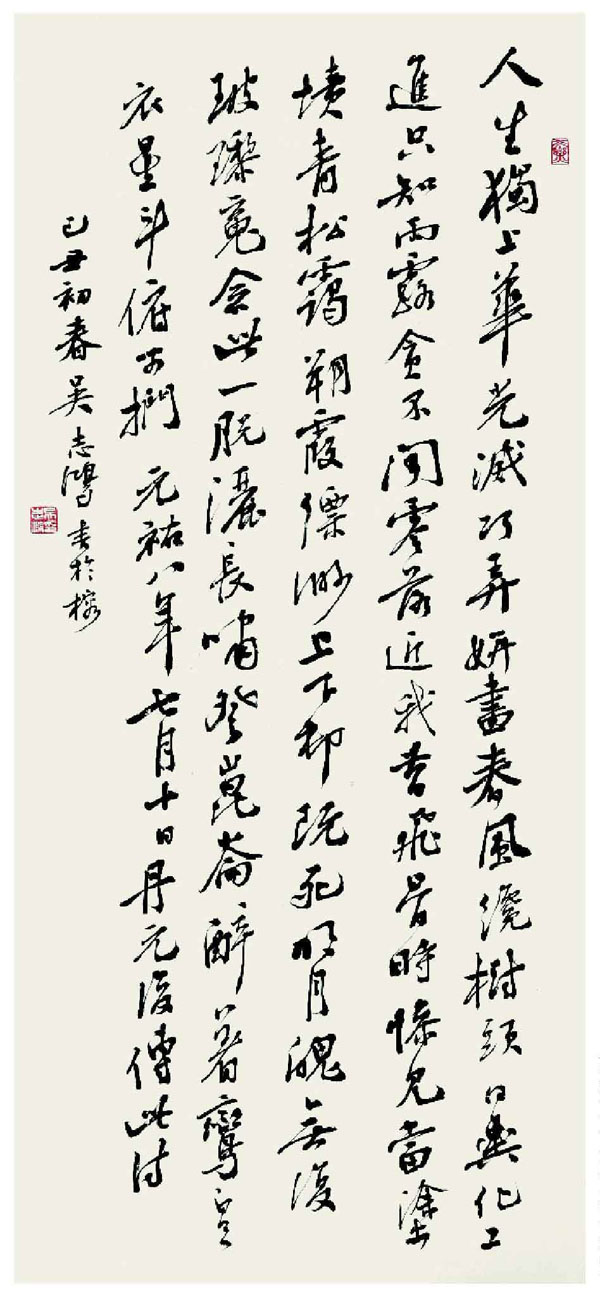 人生獨上華光滅巧弄妍春風繞樹頭日與化工
進只知雨露貪不聞零落近我昔飛骨時慘見當塗
墳青松靄朝霞縹緲上下村既死明月魄無復
玻瓈念此一脫灑長嘯登崑崙醉著鸞皇
衣星斗俯可捫 元祐八年七月十日丹元復傳此詩
己丑初春吳志鴻書於榕